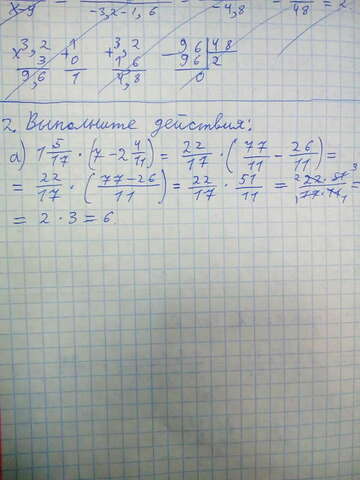 x-y -3,2-1,6 -4,8 48 = 2
x 3,2 + 1 + 3,2 - 96 | 48
3 0 1 6 96 | 2
9,6 1 4,8 0
2. Выполните действия:
а) 1 5/17 · (7 - 2 4/11) = 22/17 · (77/11 - 26/11) =
= 22/17 · (77-26/11) = 22/17 · 51/11 = 2 22·51 3/1 17·11 1 =
= 2 · 3 = 6